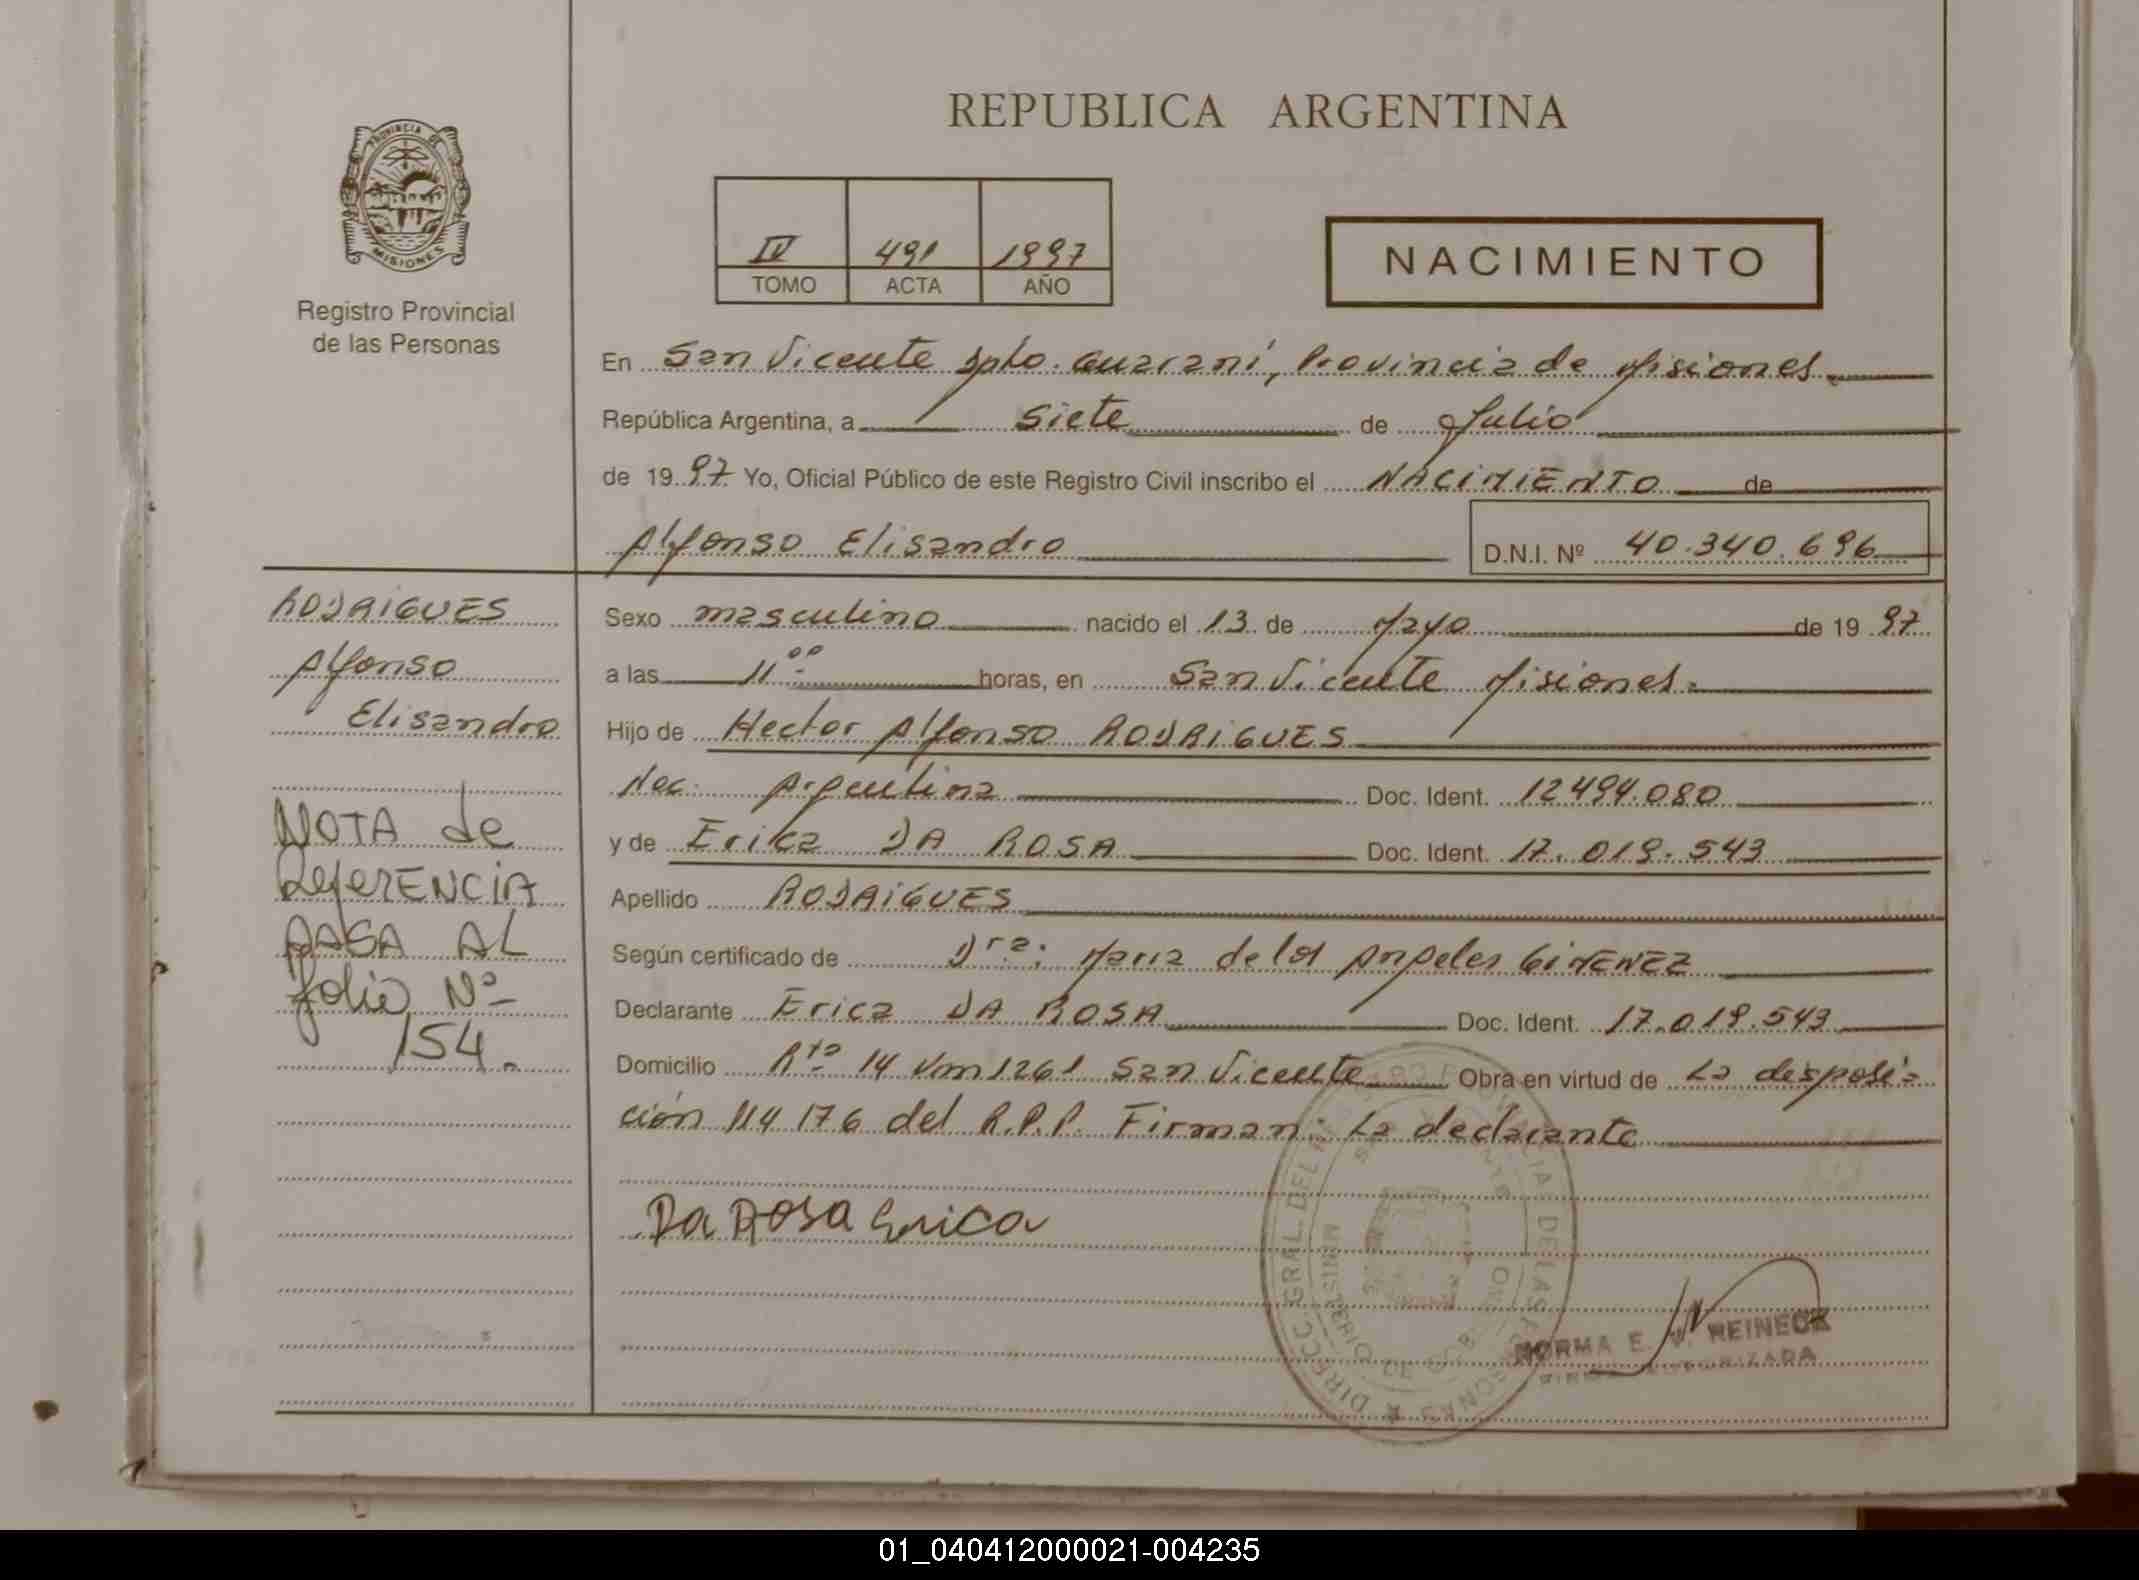 REPUBLICA ARGENTINA
PROVINCIA DE
MISIONES
Registro Provincial
de las Personas
IV 491 1997
TOMO ACTA AÑO
NACIMIENTO
En San Vicente Dpto. Guaraní, Provincia de Misiones
República Argentina, a Siete de Julio
de 1997 Yo, Oficial Público de este Registro Civil inscribo el NACIMIENTO de
Alfonso Elisandro D.N.I. Nº 40.340.696
RODRIGUES
Alfonso
Elisandro
NOTA de
ReferENCIA
PASA AL
folio Nº
154.
Sexo masculino nacido el 13 de Mayo de 1997
a las 11 00 horas, en San Vicente Misiones.
Hijo de Hector Alfonso RODRIGUES
Nac. Argentina Doc. Ident. 12494.080
y de Erica DA ROSA Doc. Ident. 17.019.543
Apellido RODRIGUES
Según certificado de Dra. Maria de los Angeles GIMENEZ
Declarante Erica DA ROSA Doc. Ident. 17.019.543
Domicilio Rta 14 Km 1261 San Vicente Obra en virtud de La disposi-
ción 114 176 del R.P.P. Firman: La declarante
Da Rosa Erica
DIRECC. GRAL. DEL
DE LAS PERSONAS
MINISTERIO DE GOBIERNO
NORMA E. V. REINECK
FIRMA AUTORIZADA
01_040412000021-004235